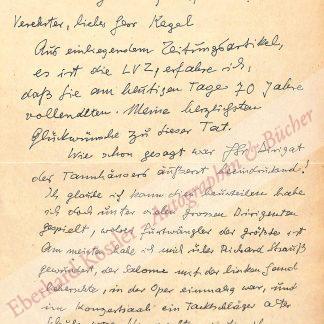 Verehrter, lieber Herr Kegel
Aus einliegendem Zeitungsartikel,
es ist die LVZ, erfahre ich,
daß Sie am heutigen Tage 70 Jahre
vollendeten. Meine herzlichsten
Glückwünsche zu dieser Tat.
Wie schon gesagt war Ihr Dirigat
des Tannhäusers äußerst beeindruckend!
Ich glaube ich kann dies beurteilen habe
ich doch unter vielen grossen Dirigenten
gespielt, wobei Furtwängler der größte ist
Am meisten habe ich mich über Richard Strauß
gewundert, der Salome mit der linken Hand
beherrschte, in der Oper einmalig war, und
im Konzertsaal ein Taktschläger alter
Eberhard Köstler Autographen & Bücher